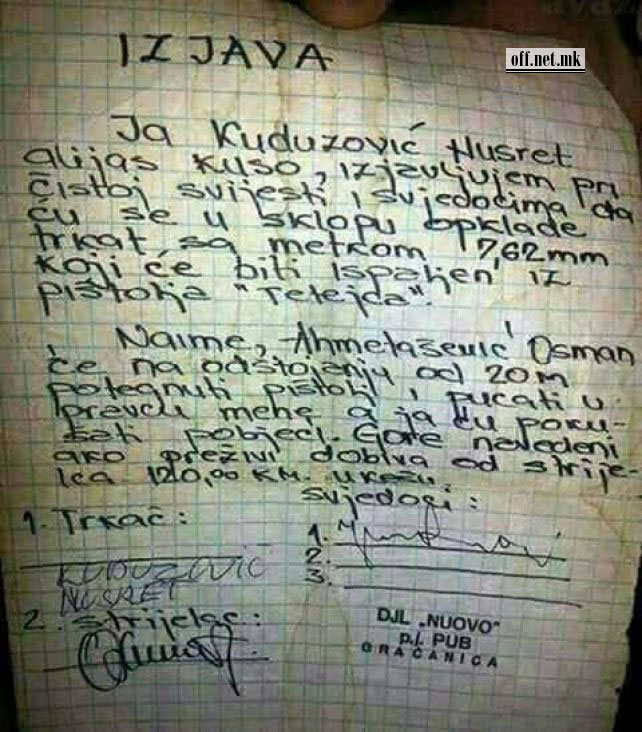 IZJAVA
off.net.mk
Ja Kuduzović Nusret
alijas Kuso, izjavljujem pri
čistoj svijesti i svjedocima da
ću se u sklopu opklade
trkat sa metkom 7,62mm
koji će biti ispaljen iz
pištolja "Tetejca".
Naime, Ahmetašević Osman
će na odstojanju od 20m
potegnuti pištolj i pucati u
pravcu mene a ja ću poku-
šati pobjeći. Gore navedeni
ako preživi dobiva od strije-
lca 120,00 KM. u kešu.
svjedoci:
1. Trkač:
KUDUZOVIĆ
NUSRET
2. strijelac:
1.
2.
3.
DJL „NUOVO"
p.j. PUB
GRAČANICA